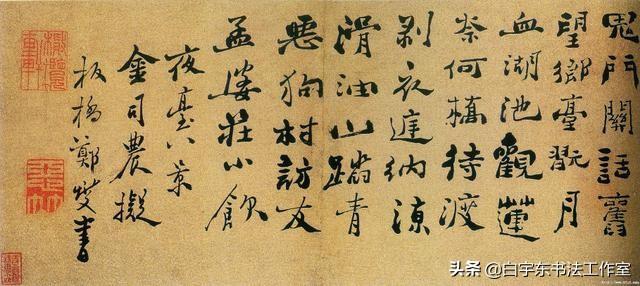 鬼門關話舊
望鄉臺翫月
血湖池觀蓮
奈何橋待渡
剥衣納涼
滑油山踏青
惡狗村訪友
孟婆莊小飲
夜臺八景
金司農擬
板橋鄭燮書
头条 @白宇东书法工作室